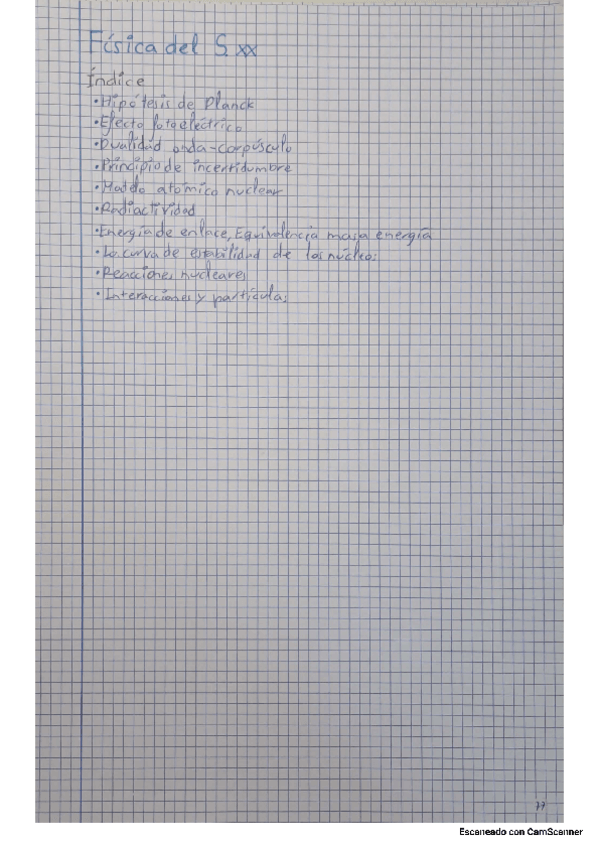 Física del S.XX
Índice
• Hipótesis de Planck
• Efecto fotoeléctrico
• Dualidad onda-corpúsculo
• Principio de incertidumbre
• atómico nuclear
• Radiactividad
• Energía de enlace, Equivalencia masa energía
• La curva de estabilidad de los núcleos
• Reacciones nucleares
• Interacciones y partículas
Escaneado con CamScanner